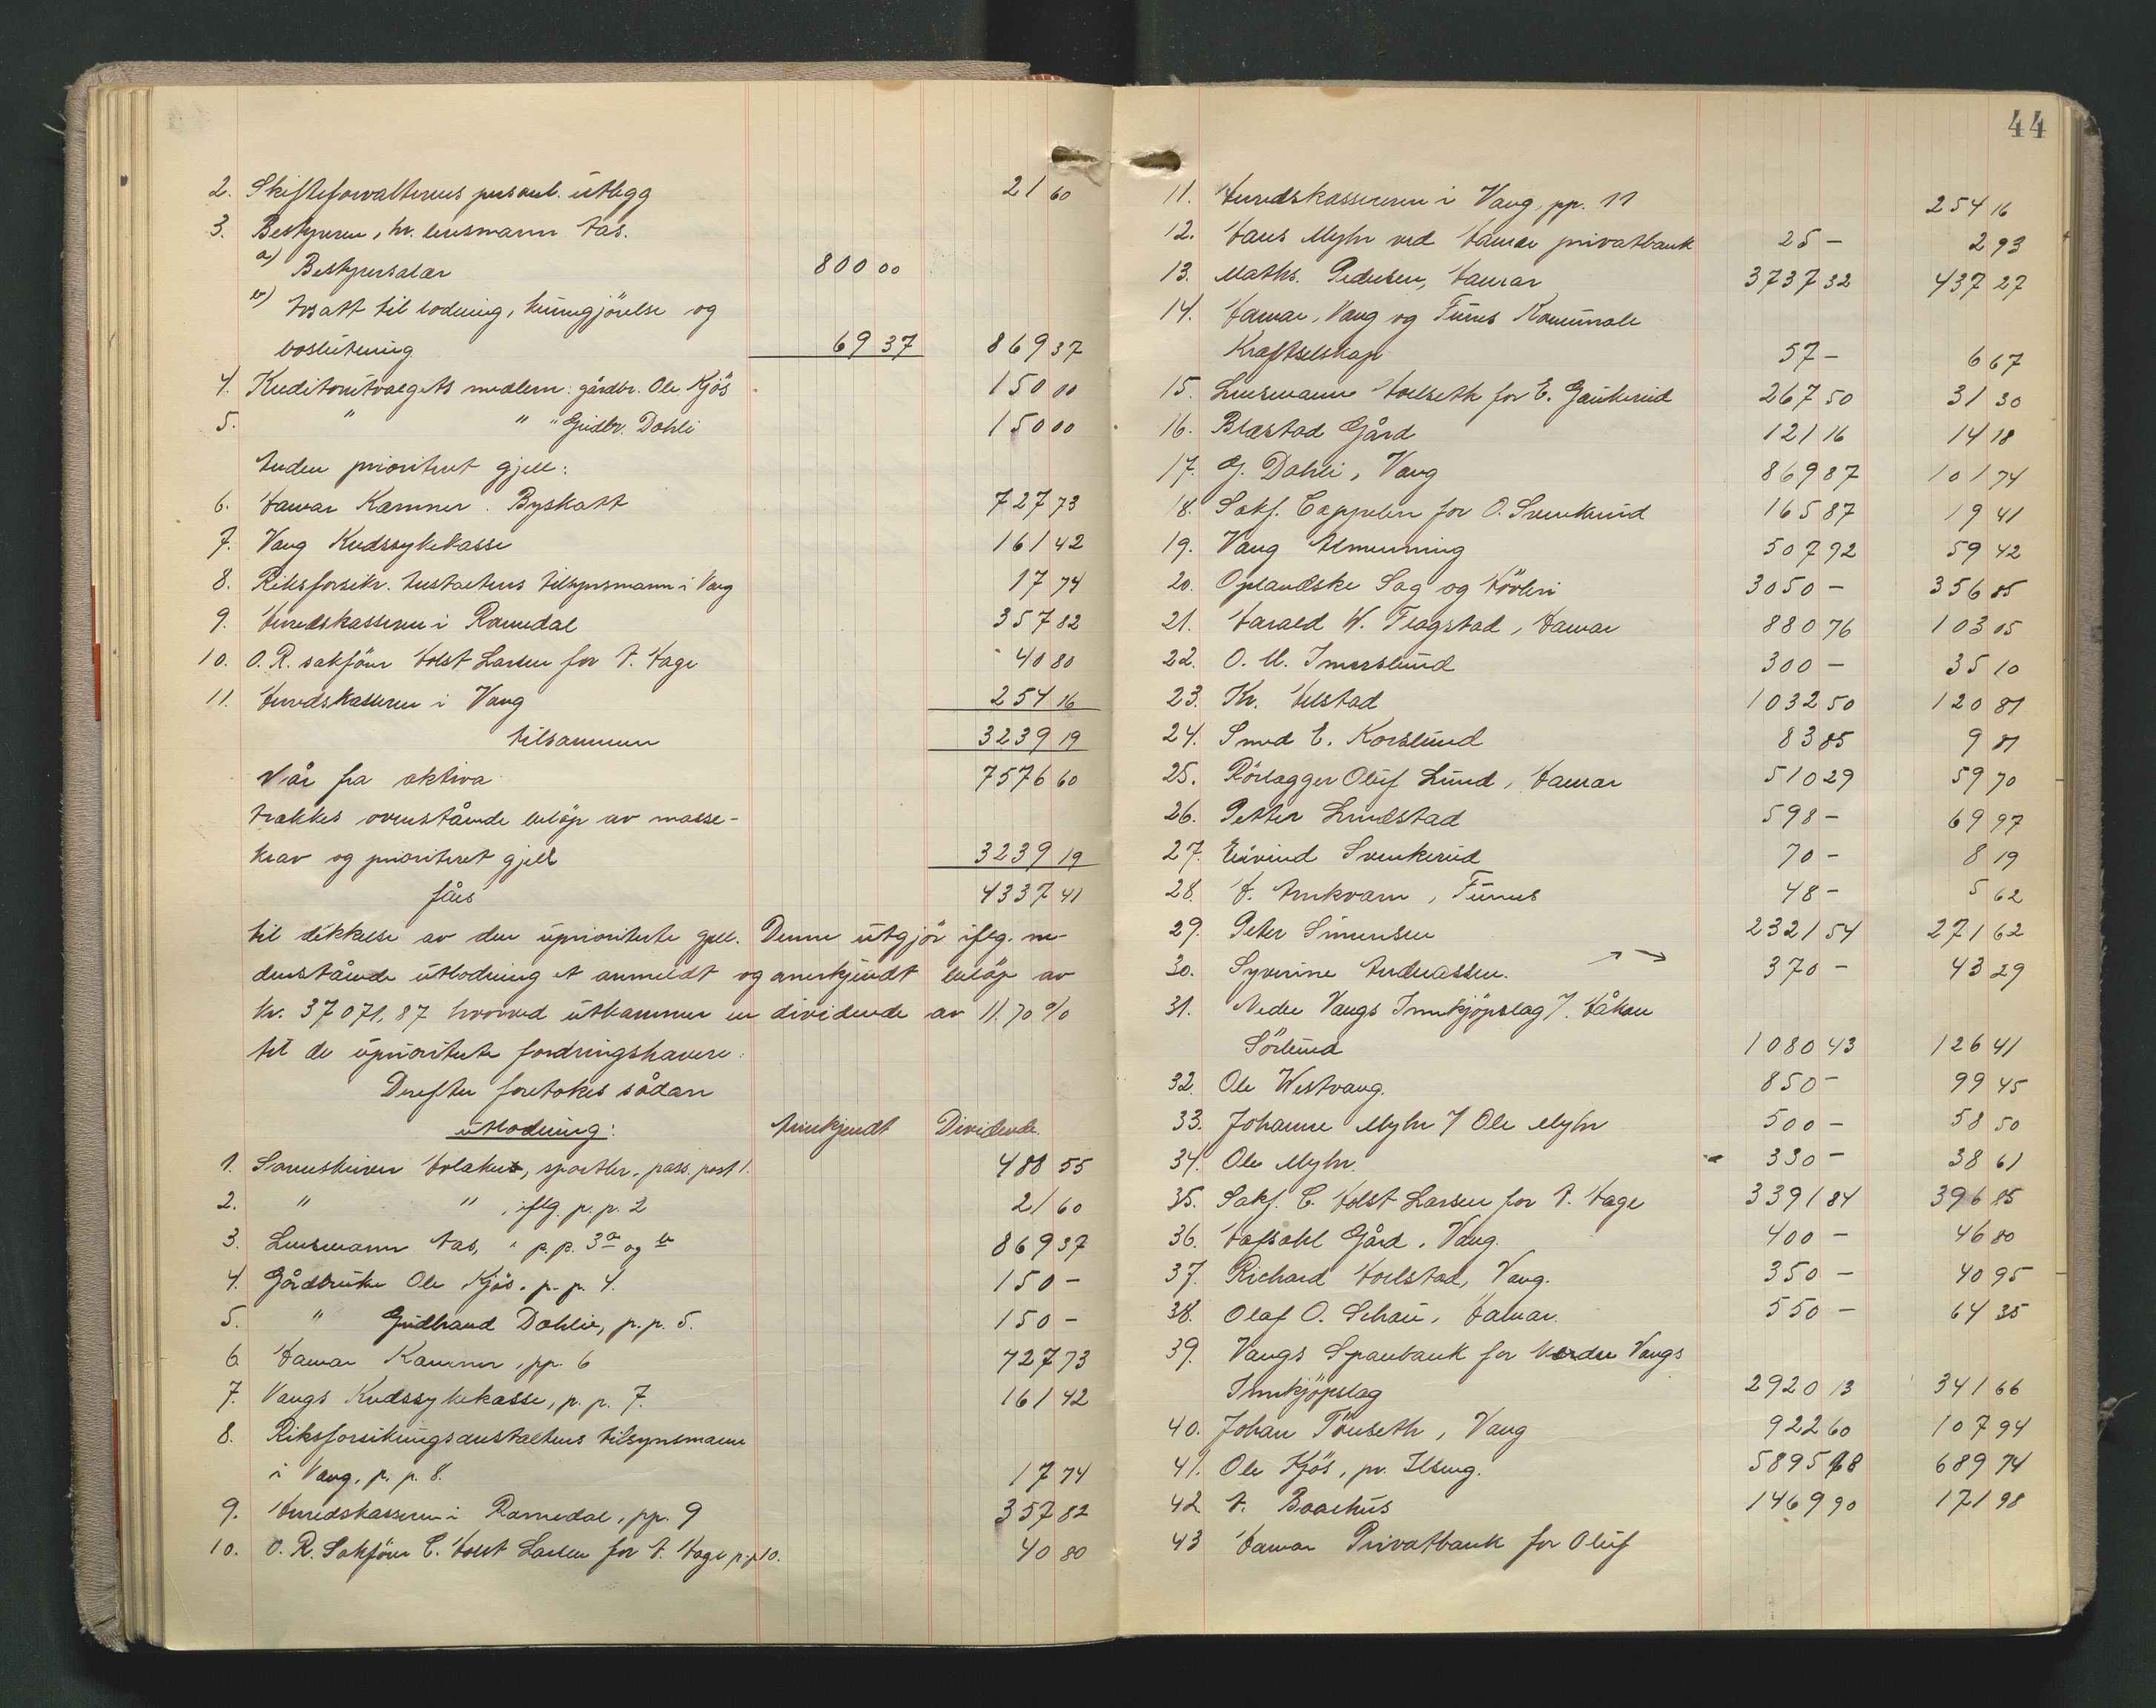 2. Skifteforvalterens personl. utlegg 21 60
3. Bestyreren, hr. lensmann Aas.
a) Bestyrersalær 800 00
b) Avsatt til lodning, kunngjörelse og
boslutning 69 37 869 37
4. Kreditorutvalgets medlem: gårdbr. Ole Kjös 150 00
5. " " " Gudbr. Dahli 150 00
Anden prioritert gjell:
6. Hamar Kæmner. Byskatt 727 73
7. Vang Kredssykekasse 161 42
8. Riksforsikr. Anstaltens tilsynsmann i Vang 17 74
9. Herredskassereren i Romedal 357 82
10. O. R. sakförer Holst Larsen for H. Hage 40 80
11. Herredskassereren i Vang 254 16
tilsammen 3239 19
Når fra aktiva 7576 60
trækkes ovenstående belöp av masse-
krav og prioritert gjell 3239 19
fåes 4337 41
til dekkelse av den uprioriterte gjell. Denne utgjör iflg. ne-
denstående utlodning et anmeldt og anerkjendt belöp av
kr. 37071,87 hvorved utkommer en dividende av 11.70 %
til de uprioriterte fordringshavere:
Derefter foretokes sådan
utlodning: Anerkjendt Dividende.
1. Sorenskriver , sportler, pass. post 1. 488 55
2. " " , iflg. p.p. 2 21 60
3. Lensmann Aas, " p.p. 3 a og b 869 37
4. Gårdbruker Ole Kjös. p.p. 4. 150 -
5. " Gudbrand Dahlie, p.p. 5. 150 -
6. Hamar Kæmner, pp. 6 727 73
7. Vangs Kredssykekasse, p.p. 7. 161 42
8. Riksforsikringsanstaltens tilsynsmann
i Vang, p.p. 8. 17 74
9. Herredskassereren i Romedal, pp. 9 357 82
10. O. R. Sakförer C. Holst Larsen for H. Hage p.p 10. 40 80
44
11. Herredskassereren i Vang, pp. 11 254 16
12. Hans Myhr ved Hamar privatbank 25 - 2 93
13. Maths. Pedersen, Hamar 3737 32 437 27
14. Hamar, Vang og Furnes Komunale
Kraftselskap 57 - 6 67
15. Lensmann Hoelseth for E. Gaukerud 267 50 31 30
16. Blæstad Gård 121 16 14 18
17. G. Dahli, Vang 869 87 101 74
18. Sakf. Cappelen for O. Svenkerud 165 87 19 41
19. Vang Almenning 507 92 59 42
20. Oplandske Sag og Hövleri 3050 - 356 85
21. Harald W. Flagstad, Hamar 880 76 103 05
22. O. M. Imerslund 300 - 35 10
23. Kr. Helstad 1032 50 120 81
24. Smed E. Korslund 83 85 9 81
25. Rörlægger Oluf Lund, Hamar 510 29 59 70
26. Petter Lundstad 598 - 69 97
27. Eivind Svenkerud 70 - 8 19
28. H. Arnkværn, Furnes 48 - 5 62
29. Peter Simensen 2321 54 271 62
30. Syverine Andreassen. 370 - 43 29
31. Nedre Vangs Innkjöpslag v/ Håkon
Sörlund 1080 43 126 41
32. Ole Westvang. 850 - 99 45
33. Johanne Myhr v/ Ole Myhr 500 - 58 50
34. Ole Myhr. 330 - 38 61
35. Sakf. C. Holst Larsen for H. Hage 3391 84 396 85
36. Hafsahl Gård, Vang. 400 - 46 80
37. Richard Hoelstad, Vang. 350 - 40 95
38. Olaf O. Schau, Hamar. 550 - 64 35
39. Vangs Sparebank for Nerdre Vangs
Innkjöpslag 2920 13 341 66
40. Johan Tönseth, Vang 922 60 107 94
41. Ole Kjös, pr. Ilseng. 5895 68 689 74
42 A. Baachus 1469 90 171 98
43 Hamar Privatbank for Oluf